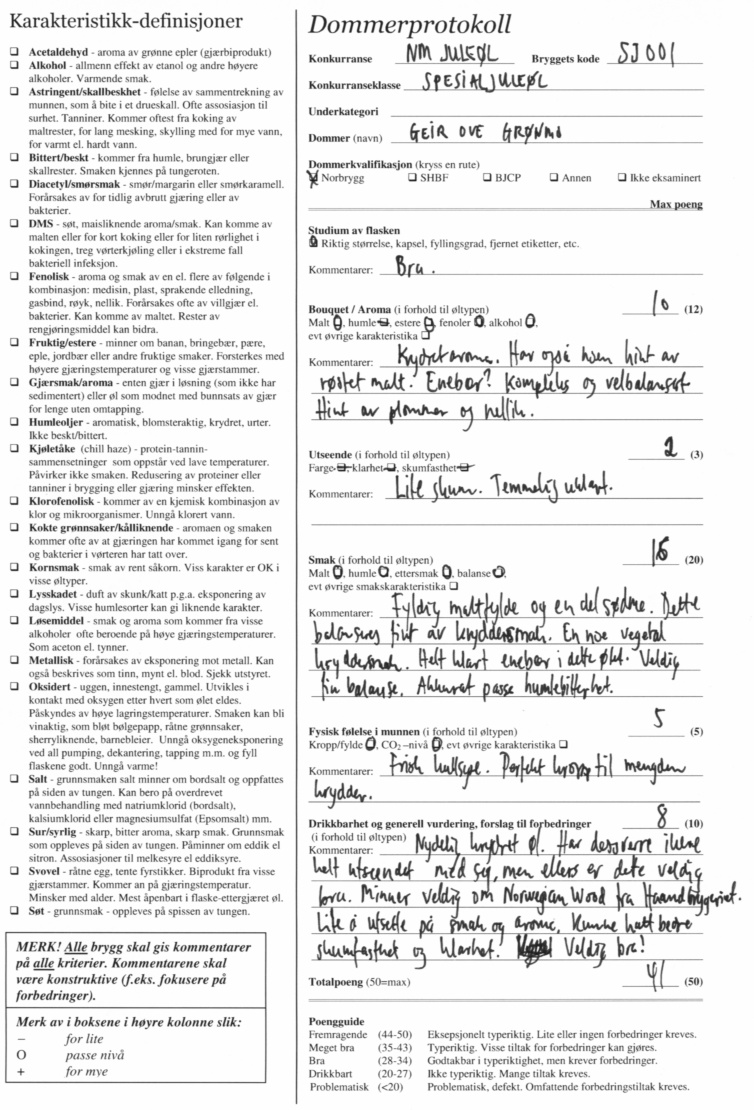 Karakteristikk-definisjoner
❑ Acetaldehyd - aroma av grønne epler (gjærbiprodukt)
❑ Alkohol - allmenn effekt av etanol og andre høyere
alkoholer. Varmende smak.
❑ Astringent/skallbeskhet - følelse av sammentrekning av
munnen, som å bite i et drueskall. Ofte assosiasjon til
surhet. Tanniner. Kommer oftest fra koking av
maltrester, for lang mesking, skylling med for mye vann,
for varmt el. hardt vann.
❑ Bittert/beskt - kommer fra humle, brungjær eller
skallrester. Smaken kjennes på tungeroten.
❑ Diacetyl/smørsmak - smør/margarin eller smørkaramell.
Forårsakes av for tidlig avbrutt gjæring eller av
bakterier.
❑ DMS - søt, maisliknende aroma/smak. Kan komme av
malten eller for kort koking eller for liten rørlighet i
kokingen, treg vørterkjøling eller i ekstreme fall
bakteriell infeksjon.
❑ Fenolisk - aroma og smak av en el. flere av følgende i
kombinasjon: medisin, plast, sprakende elledning,
gasbind, røyk, nellik. Forårsakes ofte av villgjær el.
bakterier. Kan komme av maltet. Rester av
rengjøringsmiddel kan bidra.
❑ Fruktig/estere - minner om banan, bringebær, pære,
eple, jordbær eller andre fruktige smaker. Forsterkes med
høyere gjæringstemperaturer og visse gjærstammer.
❑ Gjærsmak/aroma - enten gjær i løsning (som ikke har
sedimentert) eller øl som modnet med bunnsats av gjær
for lenge uten omtapping.
❑ Humleoljer - aromatisk, blomsteraktig, krydret, urter.
Ikke beskt/bittert.
❑ Kjøletåke (chill haze) - protein-tannin-
sammensetninger som oppstår ved lave temperaturer.
Påvirker ikke smaken. Redusering av proteiner eller
tanniner i brygging eller gjæring minsker effekten.
❑ Klorofenolisk - kommer av en kjemisk kombinasjon av
klor og mikroorganismer. Unngå klorert vann.
❑ Kokte grønnsaker/kålliknende - aromaen og smaken
kommer ofte av at gjæringen har kommet igang for sent
og bakterier i vørteren har tatt over.
❑ Kornsmak - smak av rent såkorn. Viss karakter er OK i
visse øltyper.
❑ Lysskadet - duft av skunk/katt p.g.a. eksponering av
dagslys. Visse humlesorter kan gi liknende karakter.
❑ Løsemiddel - smak og aroma som kommer fra visse
alkoholer ofte beroende på høye gjæringstemperaturer.
Som aceton el. tynner.
❑ Metallisk - forårsakes av eksponering mot metall. Kan
også beskrives som tinn, mynt el. blod. Sjekk utstyret.
❑ Oksidert - uggen, innestengt, gammel. Utvikles i
kontakt med oksygen etter hvert som ølet eldes.
Påskyndes av høye lagringstemperaturer. Smaken kan bli
vinaktig, som bløt bølgepapp, råtne grønnsaker,
sherryliknende, barnebleier. Unngå oksygeneksponering
ved all pumping, dekantering, tapping m.m. og fyll
flaskene godt. Unngå varme!
❑ Salt - grunnsmaken salt minner om bordsalt og oppfattes
på siden av tungen. Kan bero på overdrevet
vannbehandling med natriumklorid (bordsalt),
kalsiumklorid eller magnesiumsulfat (Epsomsalt) mm.
❑ Sur/syrlig - skarp, bitter aroma, skarp smak. Grunnsmak
som oppleves på siden av tungen. Påminner om eddik el
sitron. Assosiasjoner til melkesyre el eddiksyre.
❑ Svovel - råtne egg, tente fyrstikker. Biprodukt fra visse
gjærstammer. Kommer an på gjæringstemperatur.
Minsker med alder. Mest åpenbart i flaske-ettergjæret øl.
❑ Søt - grunnsmak - oppleves på spissen av tungen.
MERK! Alle brygg skal gis kommentarer
på alle kriterier. Kommentarene skal
være konstruktive (f.eks. fokusere på
forbedringer).
Merk av i boksene i høyre kolonne slik:
– for lite
O passe nivå
+ for mye
Dommerprotokoll
Konkurranse NM JULEØL Bryggets kode SJ001
Konkurranseklasse SPESIALJULEØL
Underkategori
Dommer (navn) GEIR OVE GRØNMO
Dommerkvalifikasjon (kryss en rute)
Norbrygg ❑ SHBF ❑ BJCP ❑ Annen ❑ Ikke eksaminert
Max poeng
Studium av flasken
Riktig størrelse, kapsel, fyllingsgrad, fjernet etiketter, etc.
Kommentarer: Bra.
Bouquet / Aroma (i forhold til øltypen) 10 (12)
Malt O, humle –, estere O, fenoler O, alkohol O,
evt øvrige karakteristika ❑
Kommentarer: Krydret aroma. Har også noen hint av
røstet malt. Enebær? Kompleks og velbalansert
Hint av plommer og nellik.
Utseende (i forhold til øltypen) 2 (3)
Farge –, klarhet –, skumfasthet –
Kommentarer: Lite skum. Temmelig uklart.
Smak (i forhold til øltypen) 16 (20)
Malt O, humle O, ettersmak O, balanse O,
evt øvrige smakskarakteristika ❑
Kommentarer: Fyldig maltfylde og en del sødme. Dette
balanseres fint av kryddersmak. En noe vegetal
kryddersmak. Helt klart enebær i dette ølet. Veldig
fin balanse. Akkurat passe humlebitterhet.
Fysisk følelse i munnen (i forhold til øltypen) 5 (5)
Kropp/fylde O, CO₂ –nivå O, evt øvrige karakteristika ❑
Kommentarer: Frisk kullsyre. Perfekt kropp til mengden
krydder.
Drikkbarhet og generell vurdering, forslag til forbedringer 8 (10)
(i forhold til øltypen)
Kommentarer: Nydelig krydret øl. Har dessverre ikke
helt utseendet med seg, men ellers er dette veldig
bra. Minner veldig om Norwegian Wood fra Haandbryggeriet.
Lite å utsette på smak og aroma. Kunne hatt bedre
skumfasthet og klarhet. Veldig bra!
Totalpoeng (50=max) 41 (50)
Poengguide
Fremragende (44-50) Eksepsjonelt typeriktig. Lite eller ingen forbedringer kreves.
Meget bra (35-43) Typeriktig. Visse tiltak for forbedringer kan gjøres.
Bra (28-34) Godtakbar i typeriktighet, men krever forbedringer.
Drikkbart (20-27) Ikke typeriktig. Mange tiltak kreves.
Problematisk (<20) Problematisk, defekt. Omfattende forbedringstiltak kreves.